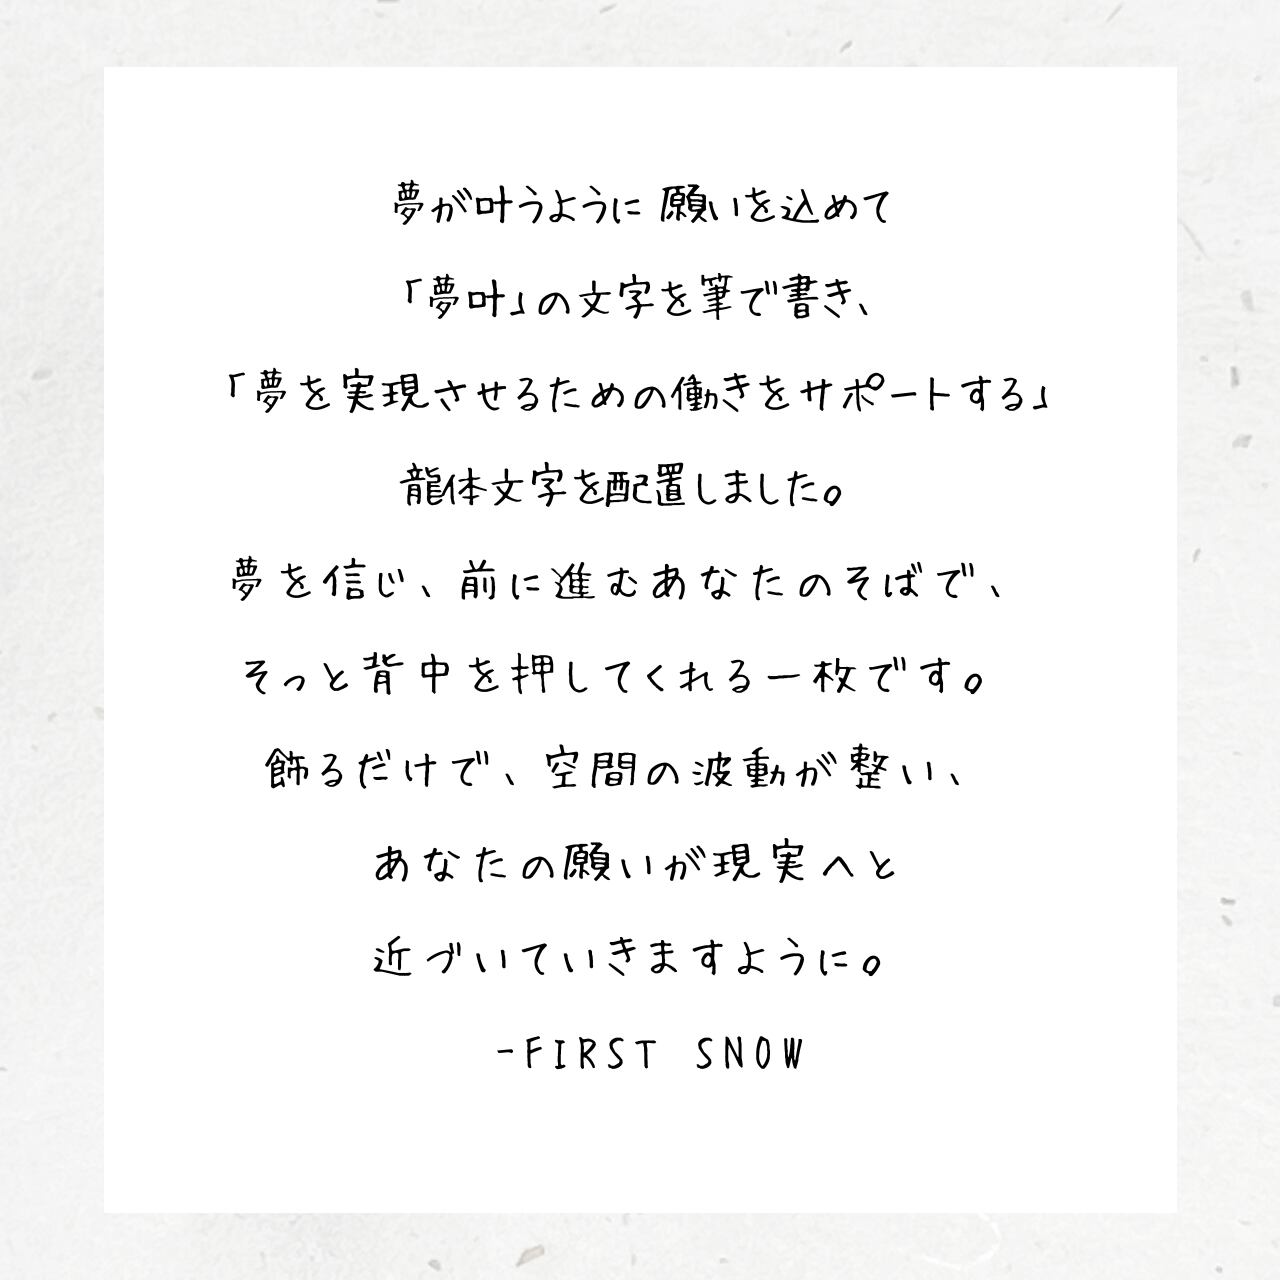 夢が叶うように 願いを込めて
「夢叶」の文字を筆で書き、
「夢を実現させるための働きをサポートする」
龍体文字を配置しました。
夢を信じ、前に進むあなたのそばで、
そっと背中を押してくれる一枚です。
飾るだけで、空間の波動が整い、
あなたの願いが現実へと
近づいていきますように。
-FIRST SNOW